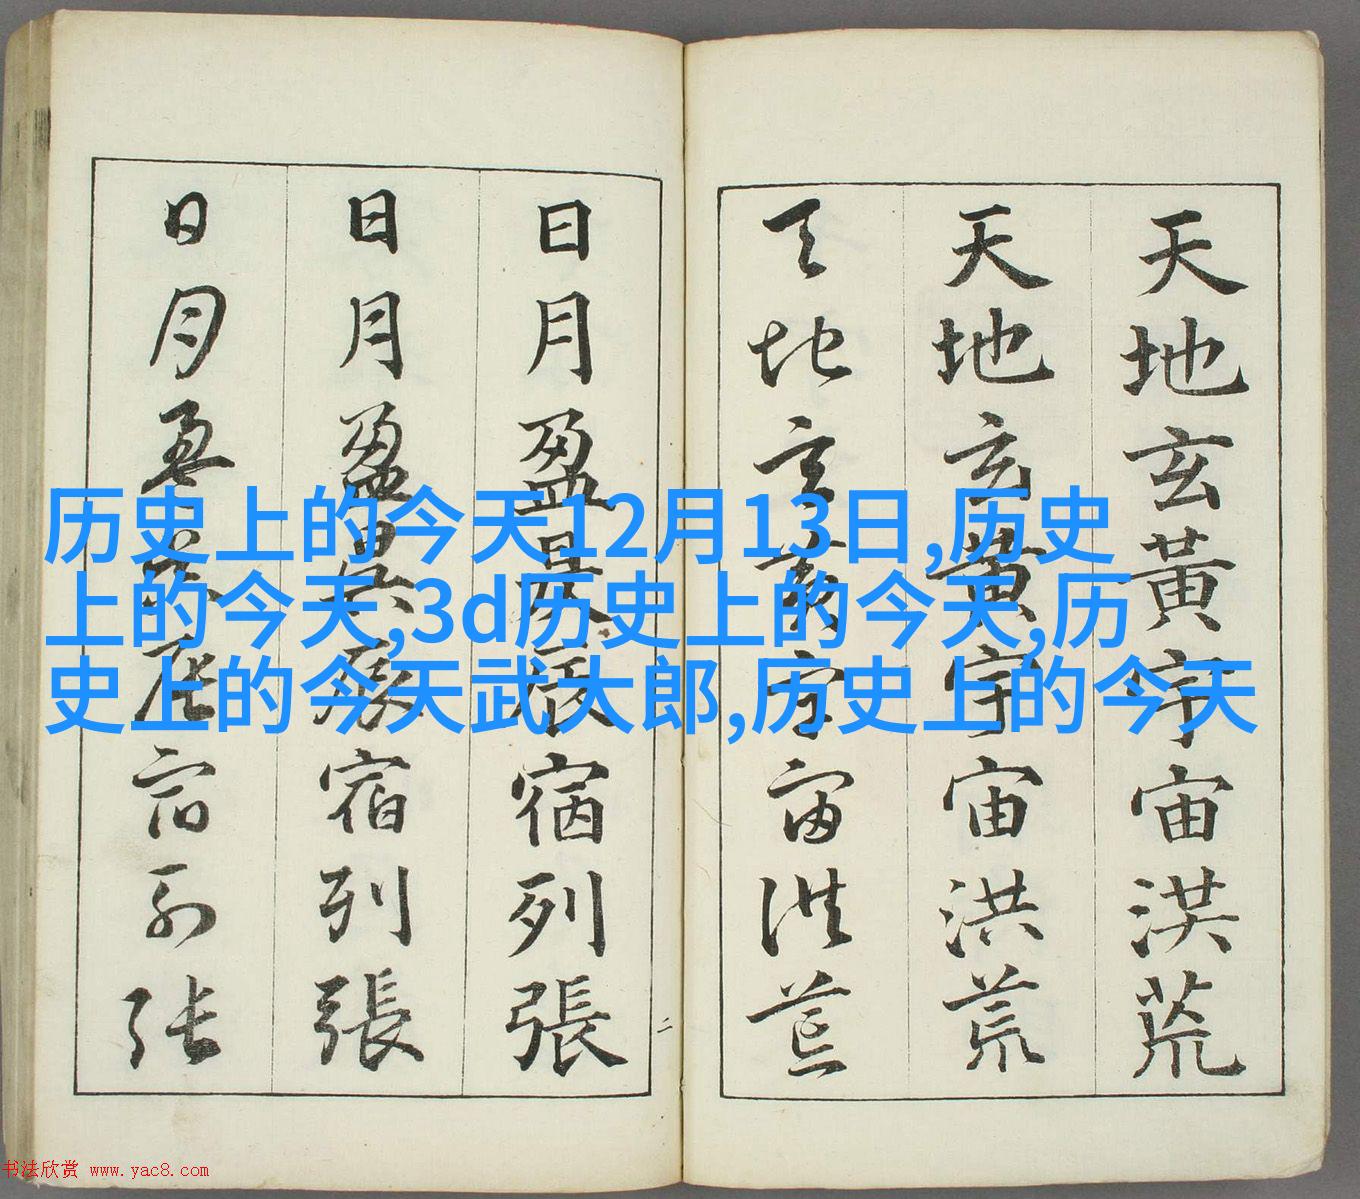 天地玄黃宇宙洪荒
天地玄黃宇宙洪荒
天地玄黃宇宙洪荒
日月盈昃辰宿列張
日月盈昃辰宿列張
日月盈昃辰宿列張
二
历史上的今天12月13日,历史
上的今天,3d历史上的今天,历
史上的今天武大郎,历史上的今天
书法欣赏 www.yac8.com